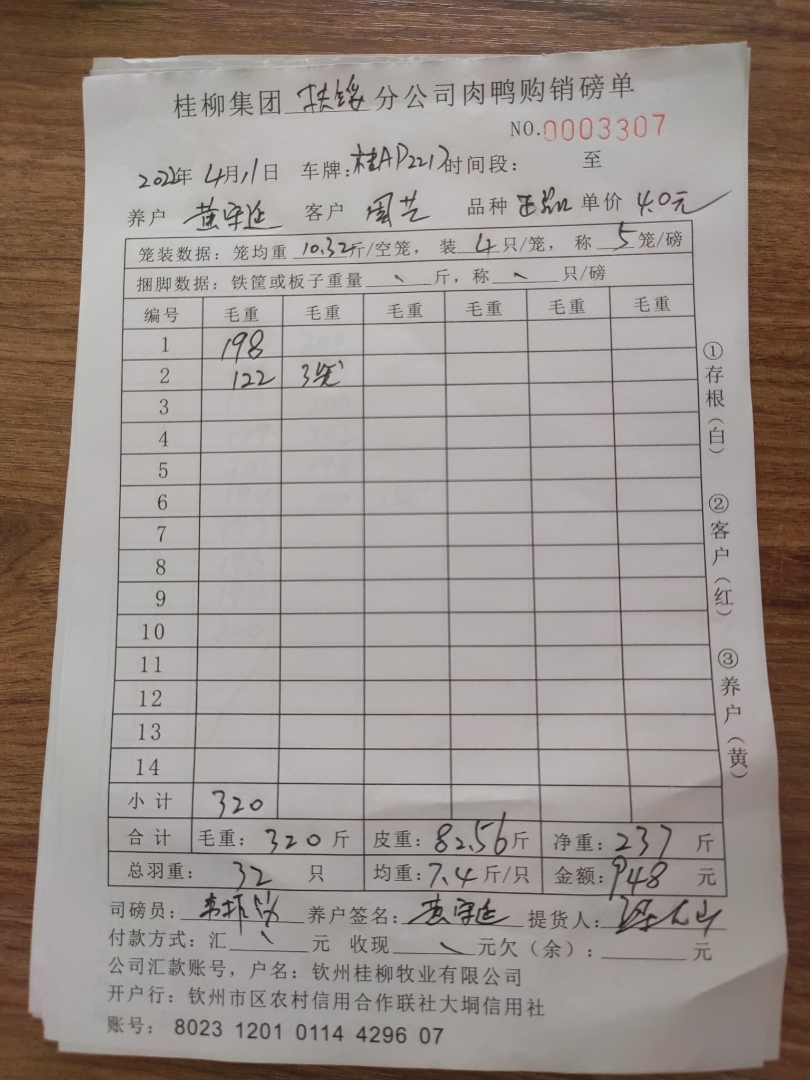 桂柳集团 扶绥 分公司肉鸭购销磅单
NO.0003307
2022年 4月11日 车牌:桂AD2217 时间段: 至
养户 黄宇延 客户 周芝 品种 单价 4.0元
笼装数据: 笼均重 10.32斤/空笼, 装 4 只/笼, 称 5 笼/磅
捆脚数据: 铁筐或板子重量 斤, 称 只/磅
编号 毛重 毛重 毛重 毛重 毛重 毛重
1 198
2 122 3笼
3
4
5
6
7
8
9
10
11
12
13
14
小计 320
合计 毛重: 320斤 皮重: 82.56斤 净重: 237 斤
总羽重: 32 只 均重: 7.4斤/只 金额: 948 元
司磅员: 养户签名: 黄宇延 提货人:
付款方式: 汇 元 收现 元欠(余): 元
公司汇款账号, 户名: 钦州桂柳牧业有限公司
开户行: 钦州市区农村信用合作联社大垌信用社
账号: 8023 1201 0114 4296 07
①存根(白)
②客户(红)
③养户(黄)